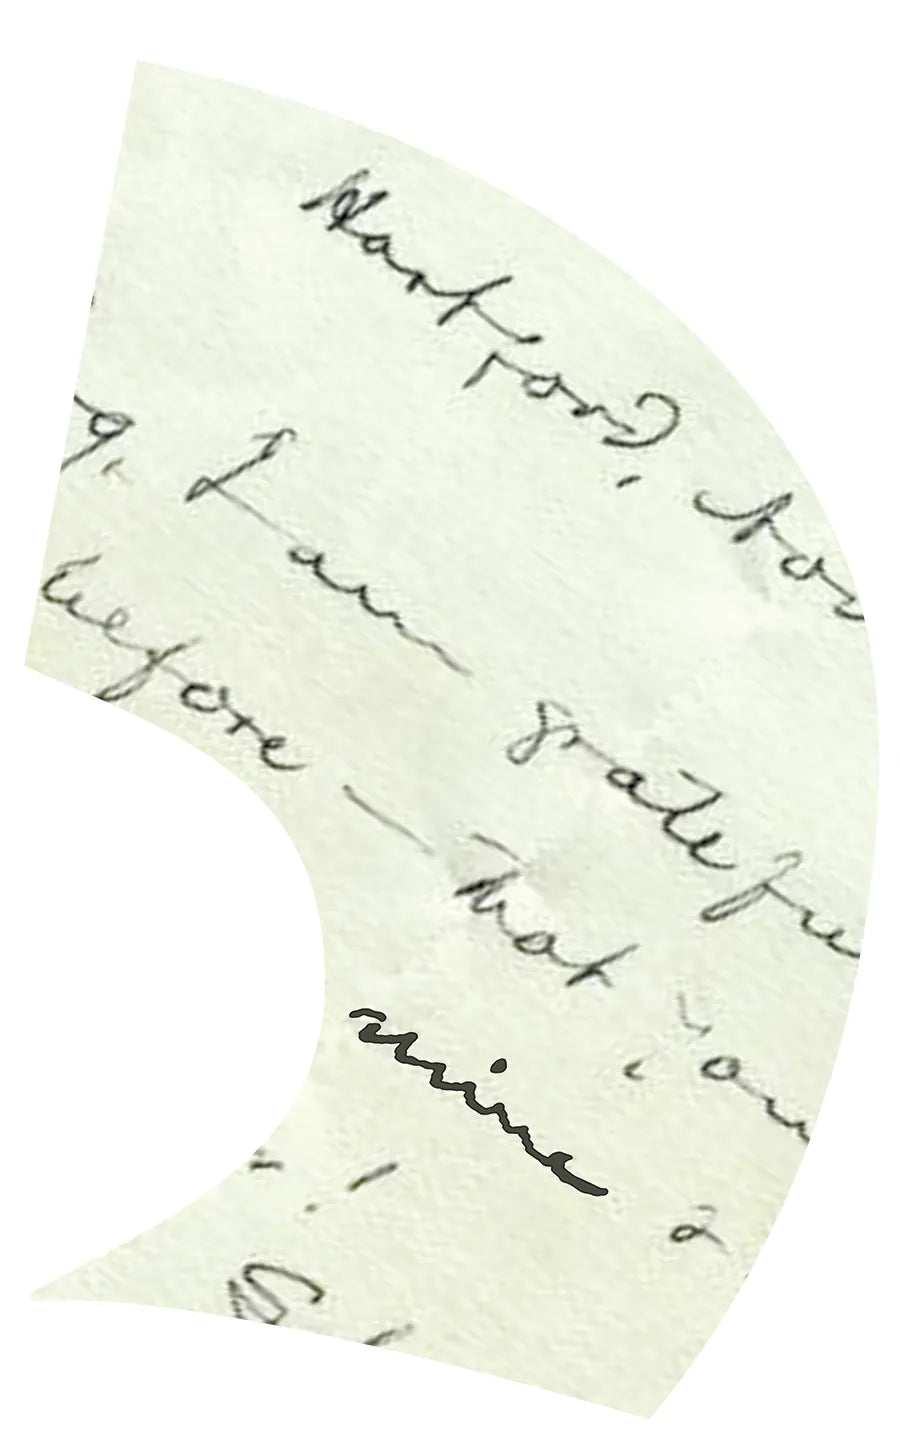 Hartford, for
g. I am grateful
before — that your
mine a
!